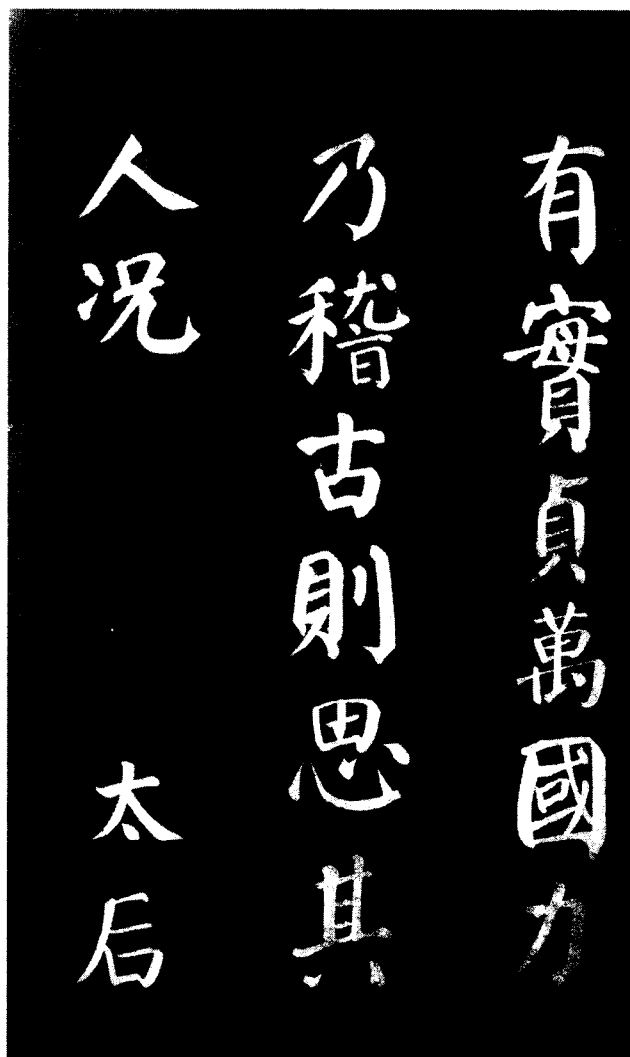 有實貞萬國力
乃稽古則思其
人况　太后